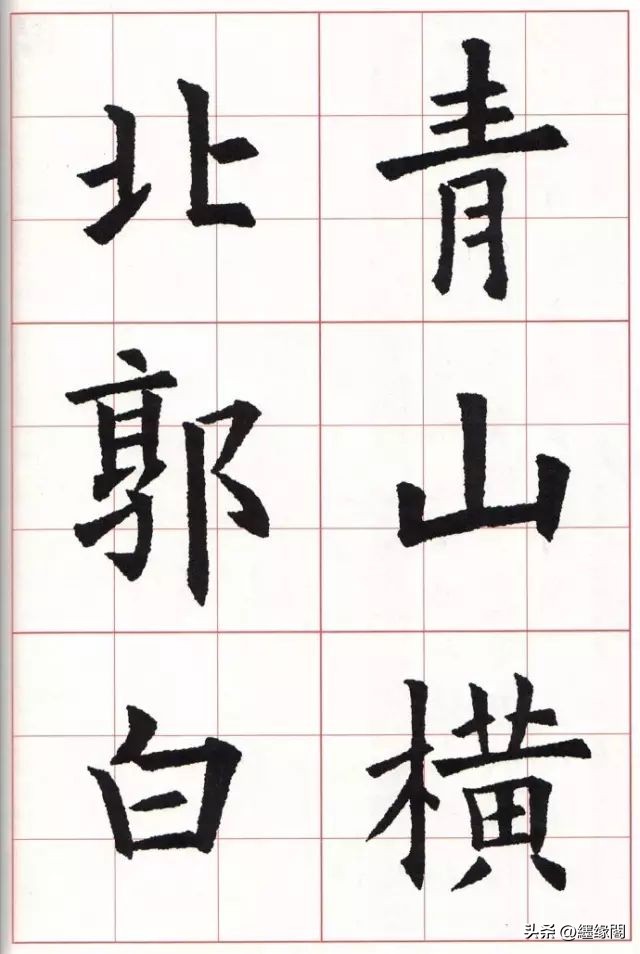 青山橫
北郭白
头条 @纆缘閣